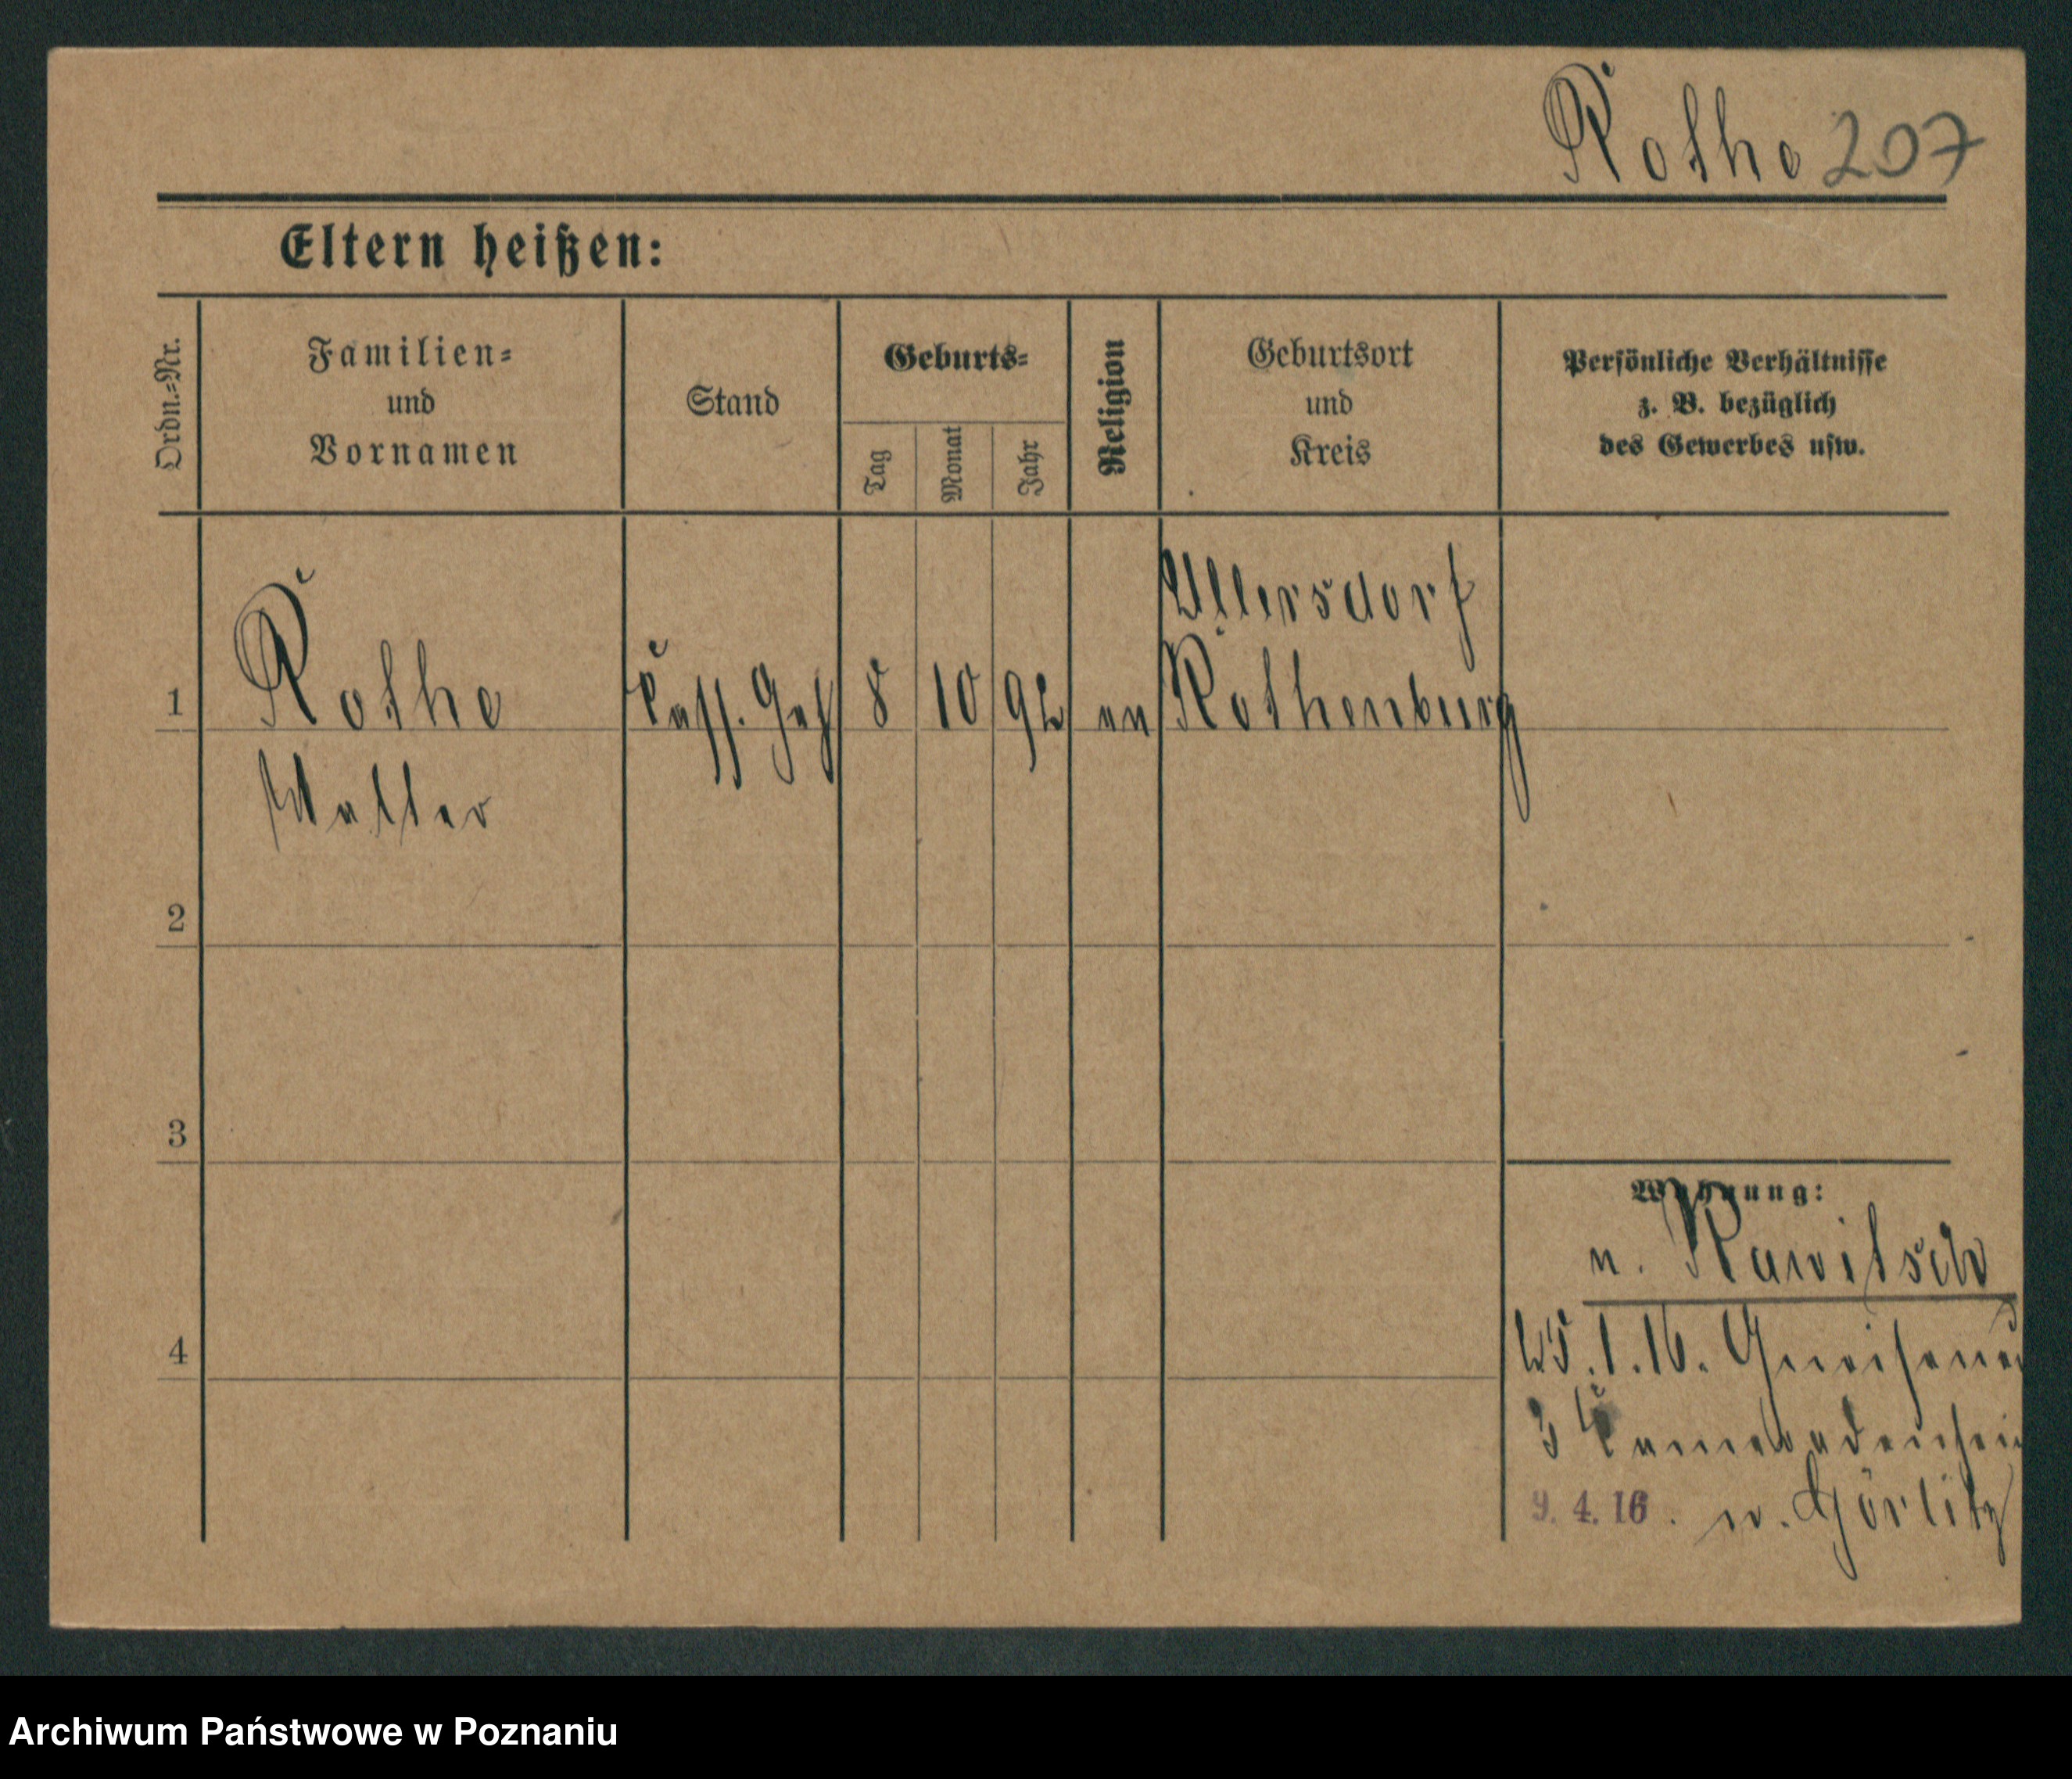 Rothe 207
Eltern heißen:
Ordn.=Nr.
Familien=
und
Vornamen
Stand
Geburts=
Tag
Monat
Jahr
Religion
Geburtsort
und
Kreis
Persönliche Verhältnisse
z. B. bezüglich
des Gewerbes usw.
Ullersdorf
1 Rothe Kass. Geh 8 10 92 ev Rothenburg
Walter
2
3
4
Wohnung:
v. Rawitsch
25.1.16. Gneisenau
3
9. 4. 16. n. Görlitz
Archiwum Państwowe w Poznaniu